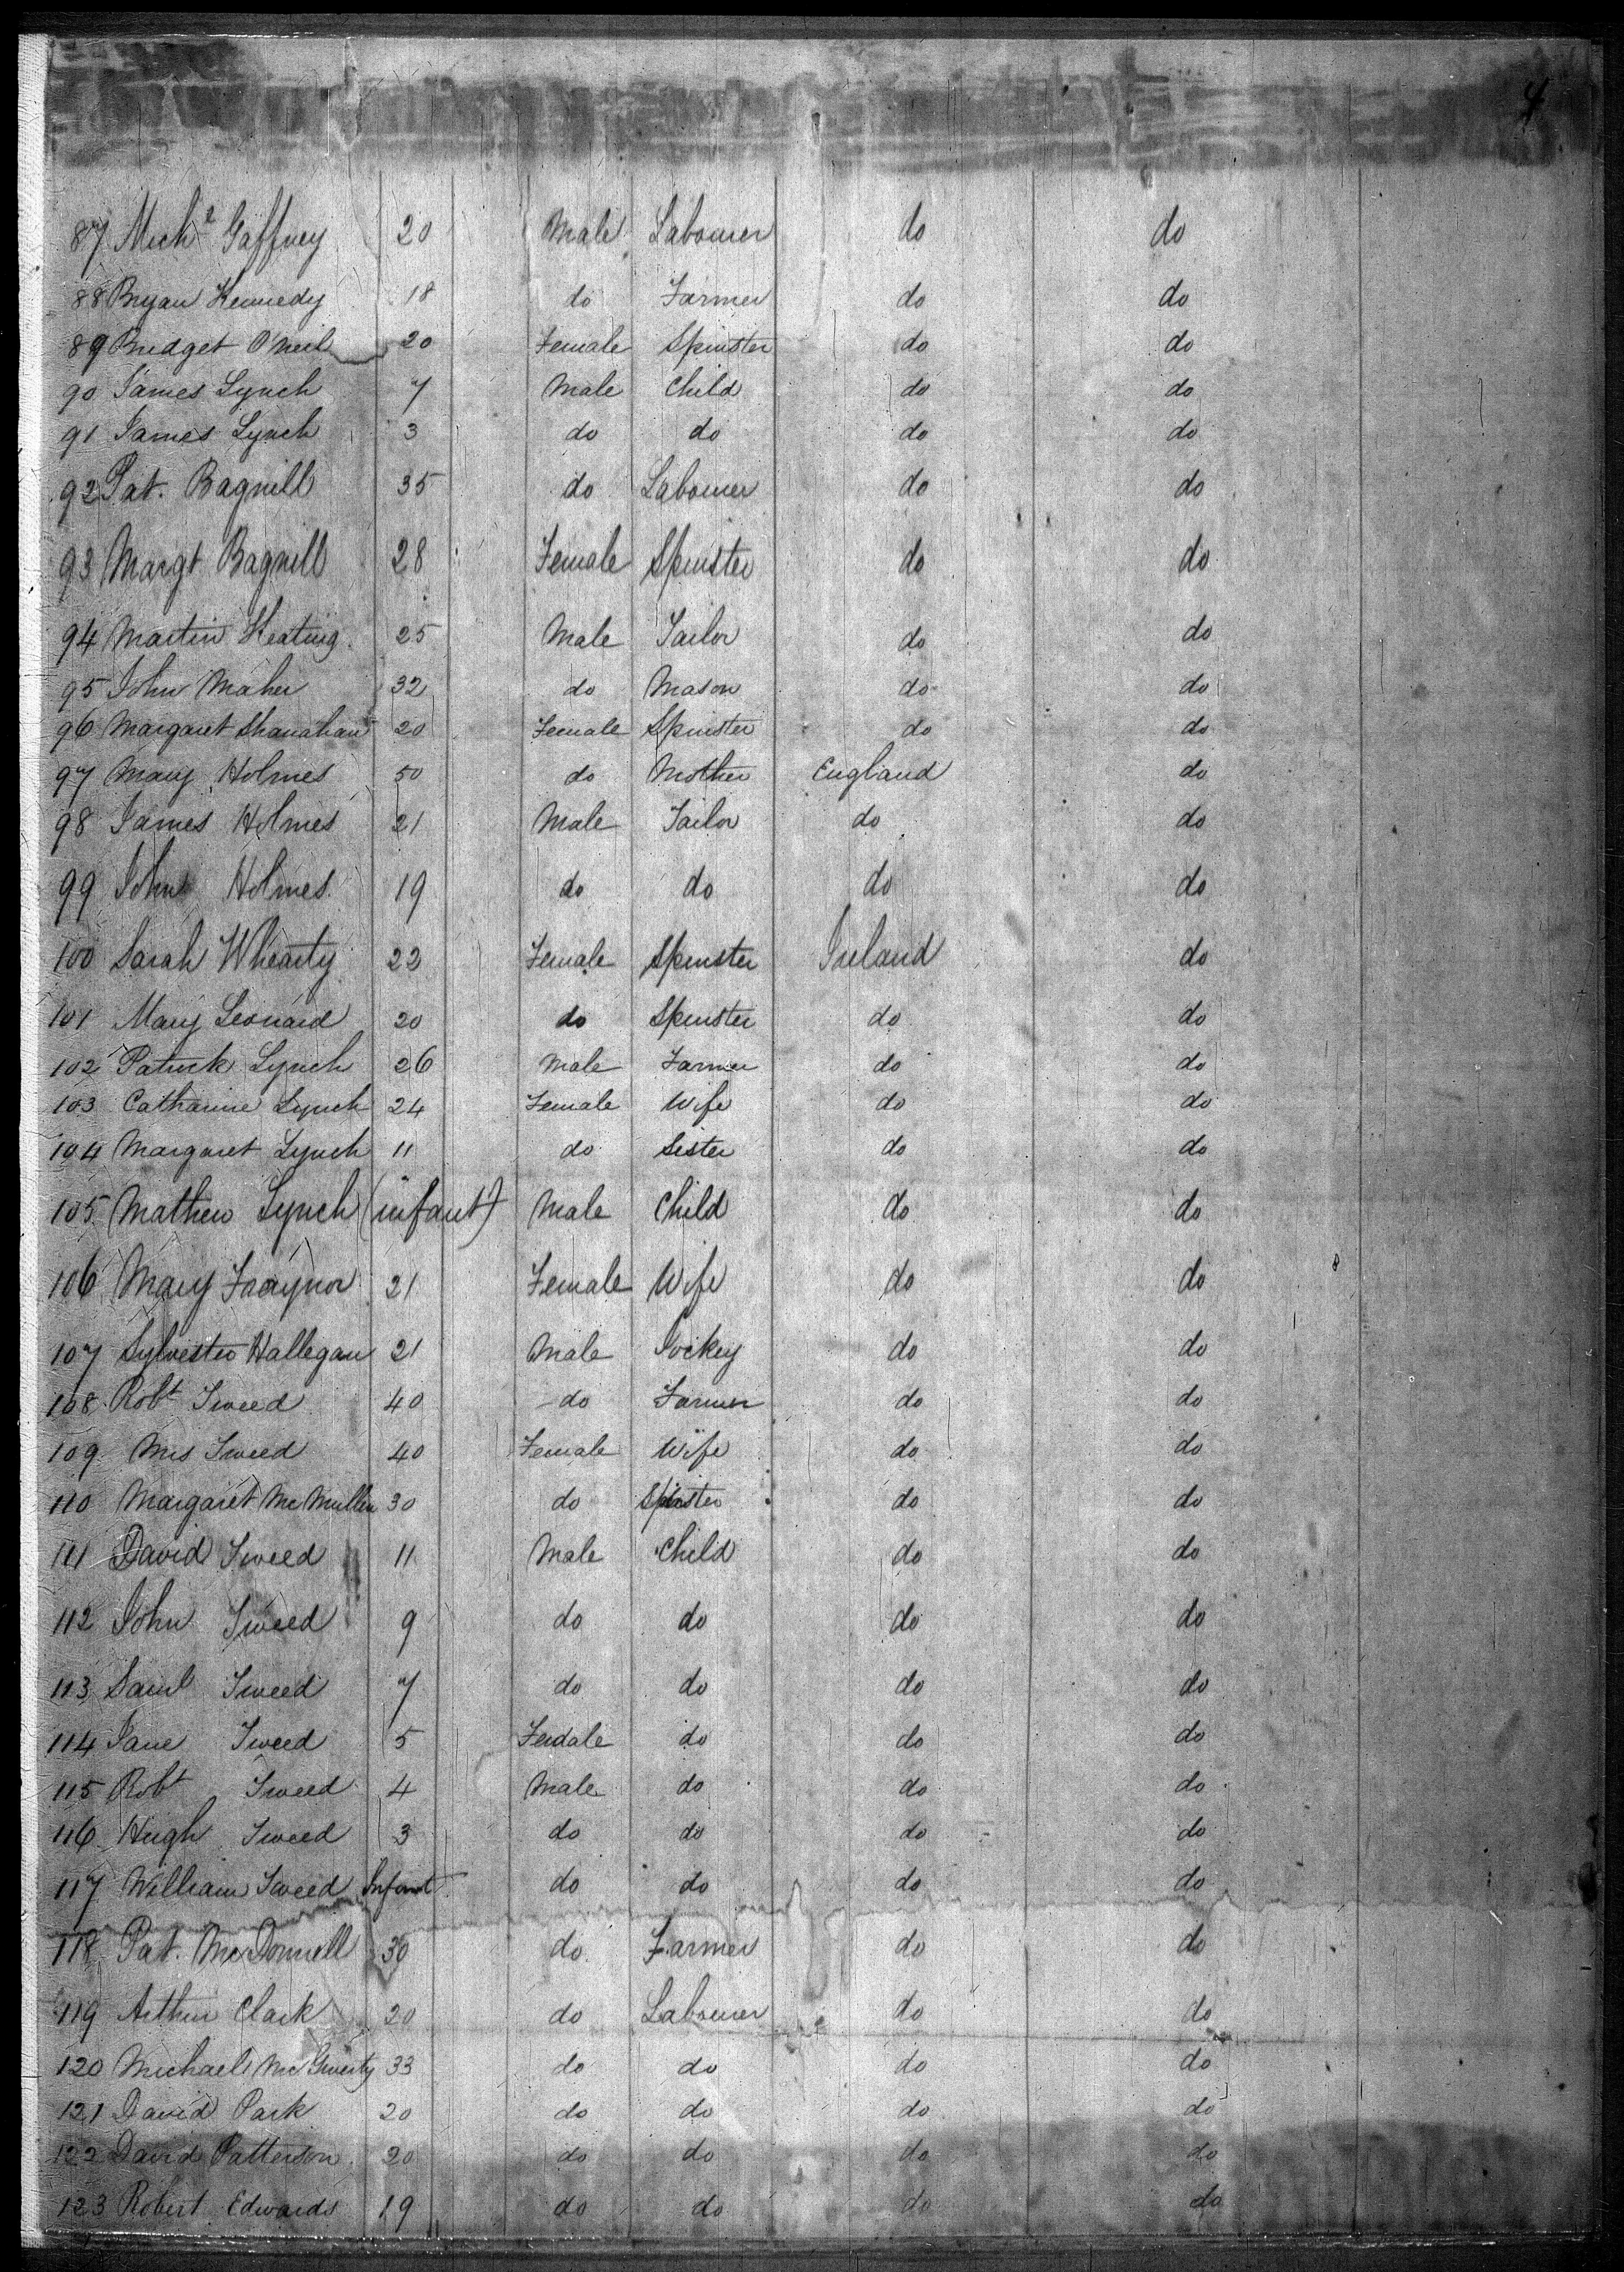 4
87 Mich^l Gaffney 20 Male Labourer do do
88 Bryan Kennedy 18 do Farmer do do
89 Bridget O'Neil 20 Female Spinster do do
90 James Lynch 7 Male Child do do
91 James Lynch 3 do do do do
92 Pat. Bagnill 35 do Labourer do do
93 Margt Bagnill 28 Female Spinster do do
94 Martin Keating 25 Male Tailor do do
95 John Maher 32 do Mason do do
96 Margaret Shanahan 20 Female Spinster do do
97 Mary Holmes 50 do Mother England do
98 James Holmes 21 Male Tailor do do
99 John Holmes 19 do do do do
100 Sarah Whearty 22 Female Spinster Ireland do
101 Mary Leonard 20 do Spinster do do
102 Patrick Lynch 26 Male Farmer do do
103 Catharine Lynch 24 Female Wife do do
104 Margaret Lynch 11 do Sister do do
105 Mathew Lynch (infant) Male Child do do
106 Mary Traynor 21 Female Wife do do
107 Sylvester Hallegan 21 Male Jockey do do
108 Robt Tweed 40 do Farmer do do
109 Mrs Tweed 40 Female Wife do do
110 Margaret McMullen 30 do Spinster do do
111 David Tweed 11 Male Child do do
112 John Tweed 9 do do do do
113 Saml Tweed 7 do do do do
114 Jane Tweed 5 Female do do do
115 Robt Tweed 4 Male do do do
116 Hugh Tweed 3 do do do do
117 William Tweed Infant do do do do
118 Pat. McDonnell 30 do Farmer do do
119 Arthur Clark 20 do Labourer do do
120 Michael 33 do do do do
121 David Park 20 do do do do
122 David Patterson 20 do do do do
123 Robert Edwards 19 do do do do